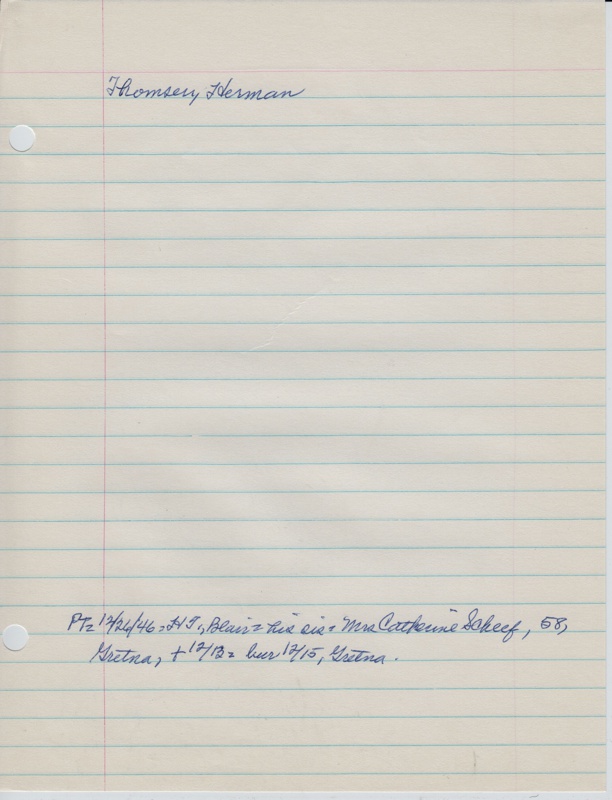 Thomsen, Herman
PT= 12/26/46 = HT, Blair = his sis = Mrs Catherine Scheef, 58,
Gretna, + 12/12 = bur 12/15, Gretna.